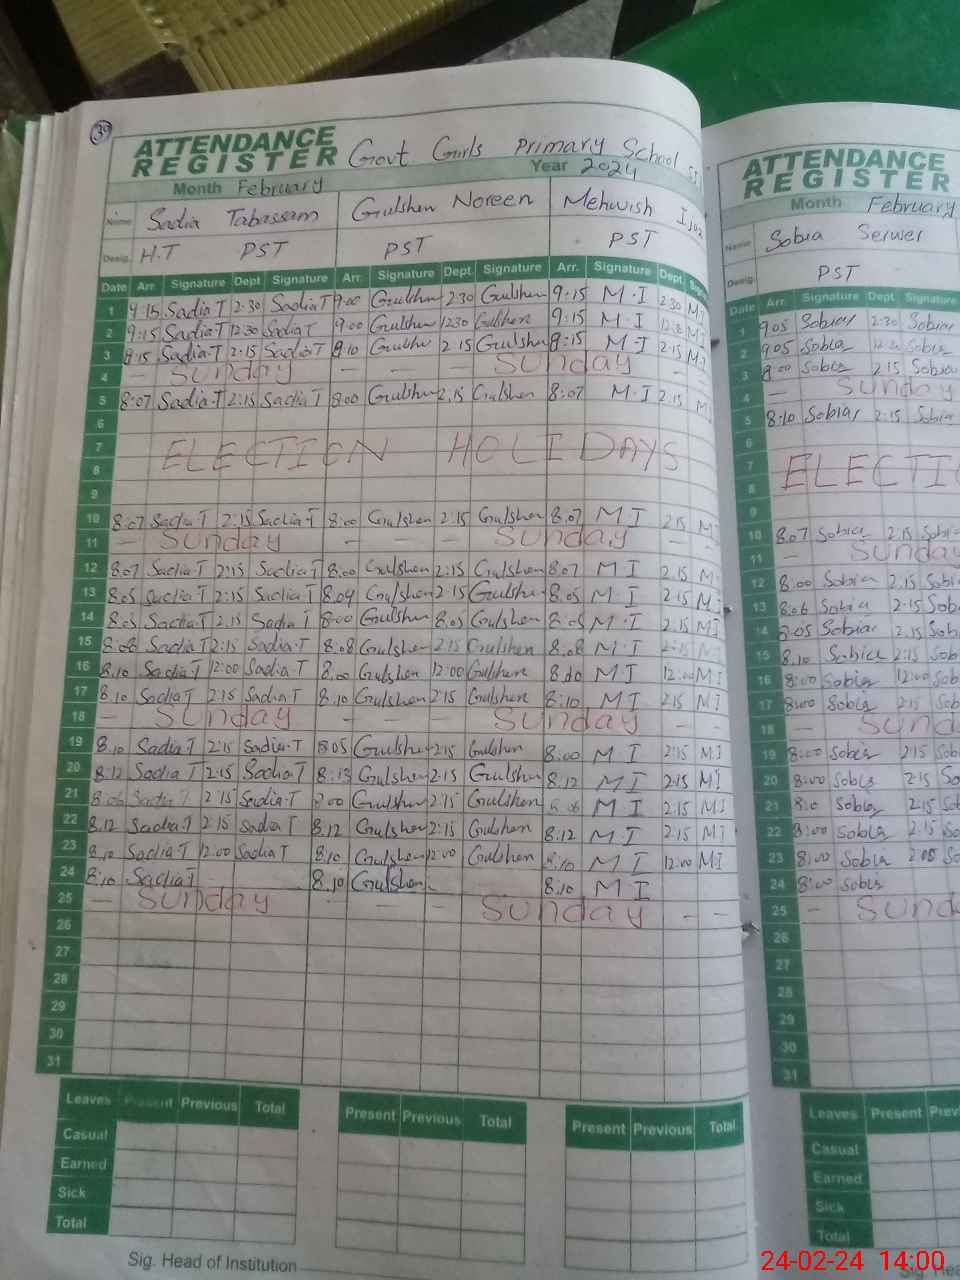 39
ATTENDANCE REGISTER Govt Girls Primary School
Month February Year 2024
Name Sadia Tabassam Gulshen Noreen Mehwish
Desig. H.T PST PST PST
Date Arr. Signature Dept Signature Arr. Signature Dept. Signature Arr. Signature Dept.
1 9:15 Sadia T 2:30 Sadia T 9:00 Gulshen 2:30 Gulshen 9:15 M.I 2:30 M.I
2 9:15 Sadia T 12:30 Sadia T 9:00 Gulshen 12:30 Gulshen 9:15 M.I 12:30
3 Sadia.T 2:15 Sadia T Gulshen 2:15 Gulshen M.I 2:15 M.I
4 – Sunday – – – Sunday – –
5 8:07 Sadia.T 2:15 Sadia T 8:00 Gulshen 2:15 Gulshen 8:07 M.I 2:15
6
7 ELECTION HOLIDAYS
8
9
10 8:07 Sadia.T 2:15 Sadia.T 8:00 Gulshen 2:15 Gulshen 8:07 M I 2:15
11 – Sunday – – – Sunday – –
12 8:07 Sadia T 2:15 Sadia.T 8:00 Gulshen 2:15 Gulshen 8:07 M I 2:15
13 8:05 Sadia T 2:15 Sadia T 8:04 Gulshen 2:15 Gulshen 8:05 M.I 2:15 M.I
14 8:05 Sadia T 2:15 Sadia T 8:00 Gulshen 8:05 Gulshen 8:05 M.I 2:15 M I
15 8:08 Sadia T 2:15 Sadia.T 8:08 Gulshen 2:15 Gulshen 8:08 M.I 2:15 M I
16 8:10 Sadia T 12:00 Sadia.T 8:00 Gulshen 12:00 Gulshen 8:10 M I 12:00 M I
17 8:10 Sadia T 2:15 Sadia T 8:10 Gulshen 2:15 Gulshen 8:10 M I 2:15 M I
18 – Sunday – – – Sunday – –
19 8:10 Sadia T 2:15 Sadia.T 8:05 Gulshen 2:15 Gulshen 8:00 M I 2:15 M.I
20 8:12 Sadia T 2:15 Sadia T 8:13 Gulshen 2:15 Gulshen 8:12 M I 2:15 M I
21 8:06 Sadia T 2:15 Sadia.T 8:00 Gulshen 2:15 Gulshen M I 2:15 M I
22 8:12 Sadia.T 2:15 Sadia T 8:12 Gulshen 2:15 Gulshen 8:12 M.I 2:15 M I
23 8:10 Sadia T 12:00 Sadia T 8:10 Gulshen 12:00 Gulshen 8:10 M I 12:00 M.I
24 8:10 Sadia T 8:10 Gulshen 8:10 M I
25 – Sunday – – – Sunday – –
26
27
28
29
30
31
Leaves Present Previous Total Present Previous Total Present Previous Total
Casual
Earned
Sick
Total
Sig. Head of Institution
ATTENDANCE REGISTER
Month February
Name Sobia Serwer
Desig. PST
Date Arr. Signature Dept Signature
1 9:05 Sobia 2:30 Sobia
2 9:05 Sobia Sobia
3 Sobia 2:15 Sobia
4 – Sunday
5 8:10 Sobia 2:15 Sobia
6
7 ELECTI
8
9
10 8:07 Sobia 2:15 Sobi
11 – Sunday
12 8:00 Sobia 2:15 Sobi
13 8:06 Sobia 2:15 Sob
14 8:05 Sobia 2:15 Sob
15 8:10 Sobia 2:15 Sob
16 8:00 Sobia 12:00 Sob
17 8:00 Sobia 2:15 Sob
18 – Sund
19 8:00 Sobia 2:15 Sob
20 8:00 Sobia 2:15 So
21 8:10 Sobia 2:15 Sob
22 8:00 Sobia 2:15 So
23 8:00 Sobia So
24 8:00 Sobia
25 – Sund
26
27
28
29
30
31
Leaves Present Previ
Casual
Earned
Sick
Total
24-02-24 14:00